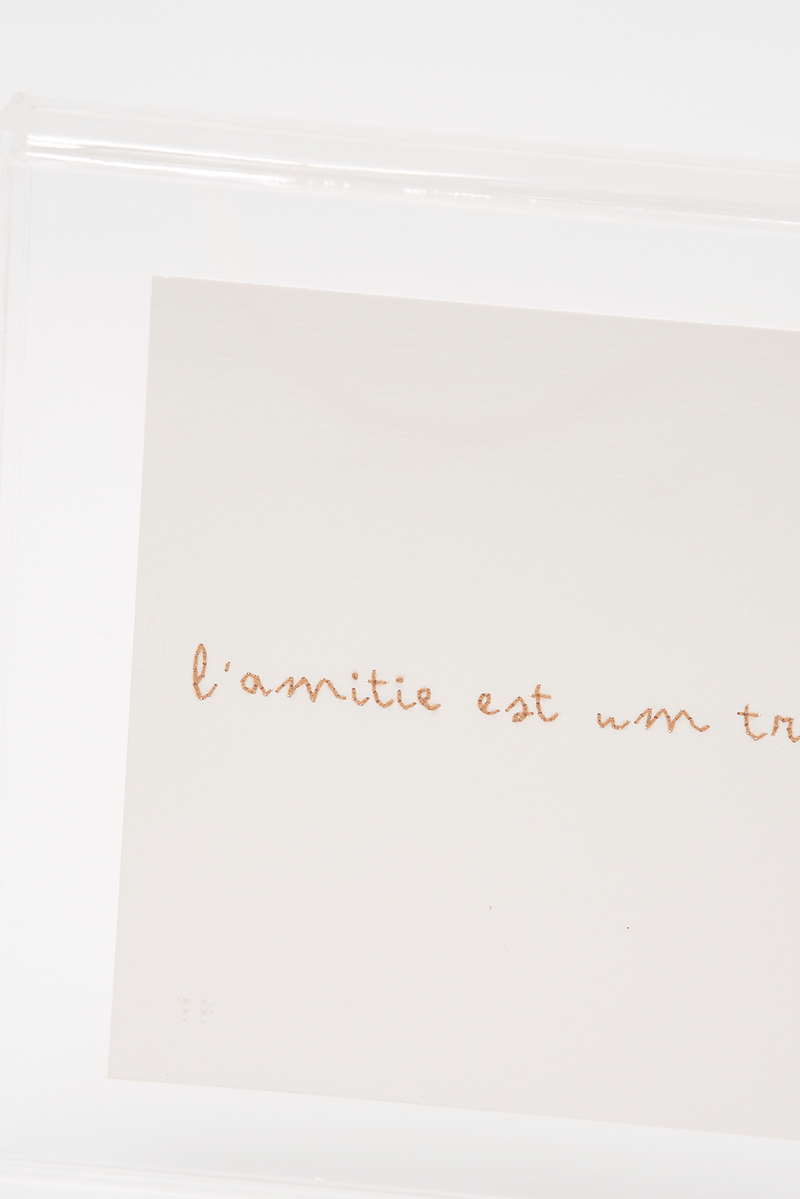 l'amitie est um tr